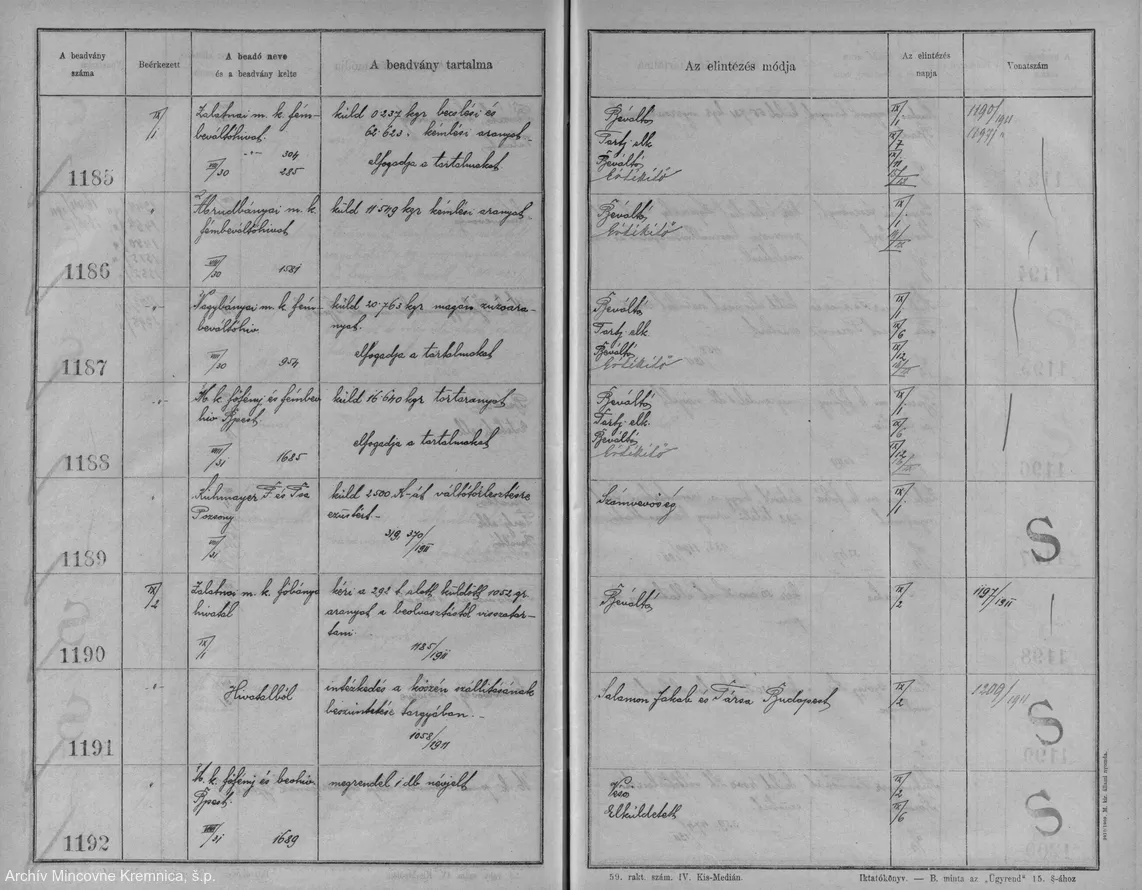 A beadvány száma
Beérkezett
A beadó neve és a beadvány kelte
A beadvány tartalma
Az elintézés módja
Az elintézés napja
Vonatszám
1185
IX/1
Zalatnai m. k. fém-
beváltóhivat.
304
VIII/30 285
küld 0·237 kgr becslési és
62·623 kémlési aranyat
elfogadja a tartalmakat
Beváltó
Tartj. elk.
Beváltó
Értékítő
IX/1
IX/7
1190/1911
1197/"
1186
"
Abrudbányai m. k.
fémbeváltóhivat
VIII/30 1581
küld 11·549 kgr kémlési aranyat
Beváltó
Értékítő
IX/1
1187
"
Nagybányai m. k. fém-
beváltóhiv.
VIII/30 954
küld 20·763 kgr magán zúzóara-
nyat.
elfogadja a tartalmakat
Beváltó
Tartj. elk.
Beváltó
Értékítő
IX/1
IX/6
IX/12
1188
"
M. k. főfémj és fémbev
hiv Bpest.
VIII/31 1685
küld 16·640 kgr törtaranyat
elfogadja a tartalmakat
Beváltó
Tartj. elk.
Beváltó
Értékítő
IX/1
IX/6
IX/12
1189
"
Kühmayer F. és Tsa
Pozsony
VIII/31
küld 2500 K-át váltótörlesztésre
ezüstért
319, 370/1911
Számvevőség
IX/1
S
1190
IX/2
Zalatnai m. k. főbánya
hivatal
IX/1
kéri a 292 t. alatt küldött 1052 gr.
aranyat a beolvasztástól visszatar-
tani
1185/1911
Beváltó
IX/2
1197/1911
1191
"
Hivatalból
intézkedés a kőszén szállításának
beszüntetése tárgyában.
1058/1911
Salamon Jakab és Társa Budapest
IX/2
1209/1911
S
1192
"
M. k. főfémj és bevhiv
Bpest.
VIII/31 1689
megrendel 1 db névjelt
Véső
Elküldetett
IX/2
IX/6
S
59. rakt. szám. IV. Kis-Médián.
Iktatókönyv. — B. minta az „Ügyrend" 15. §-ához
Archív Mincovne Kremnica, š.p.